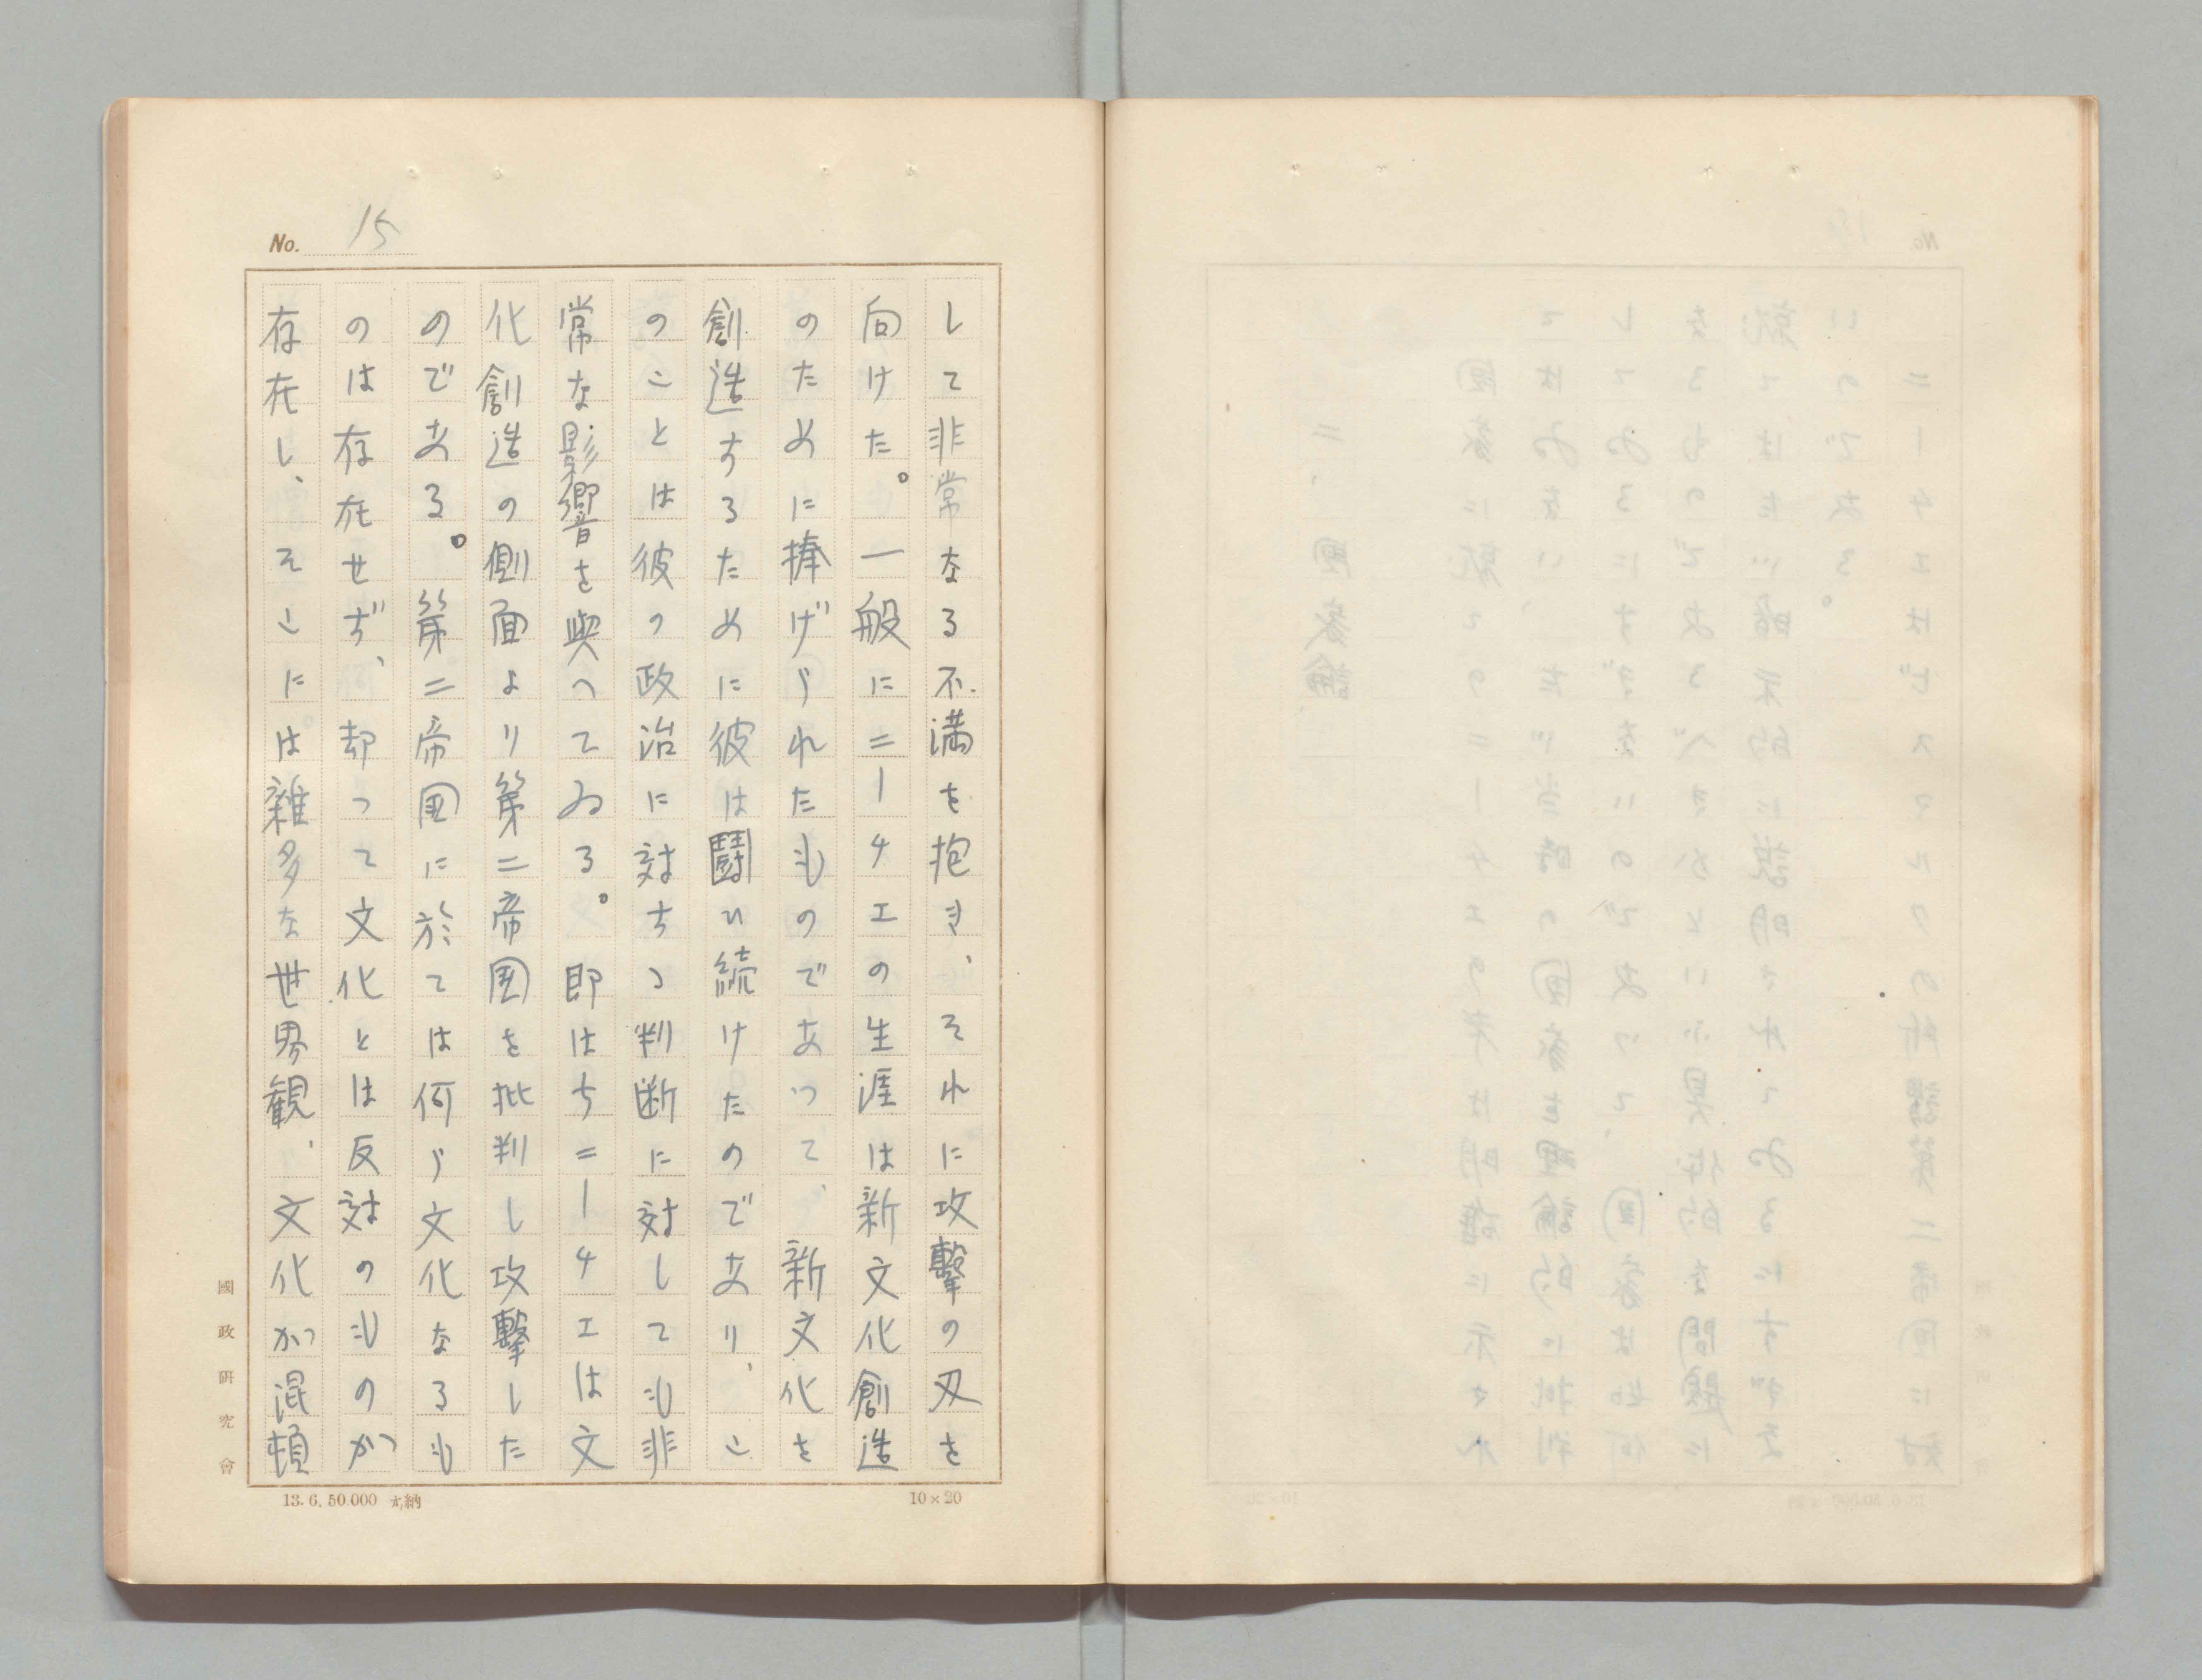 No. 15
して非常なる不満を抱き、それに攻撃の刄を
向けた。一般にニーチエの生涯は新文化創造
のために捧げられたものであつて、新文化を
創造するために彼は鬪ひ続けたのであり、こ
のことは彼の政治に対する判断に対しても非
常な影響を與へてゐる。即はちニーチエは文
化創造の側面より第二帝国を批判し攻撃した
のである。第二帝国に於ては何ら文化なるも
のは存在せず、却つて文化とは反対のものが
存在し、そこには雑多な世界観、文化が混頓
國政研究會
13.6.50.000 納
10×20